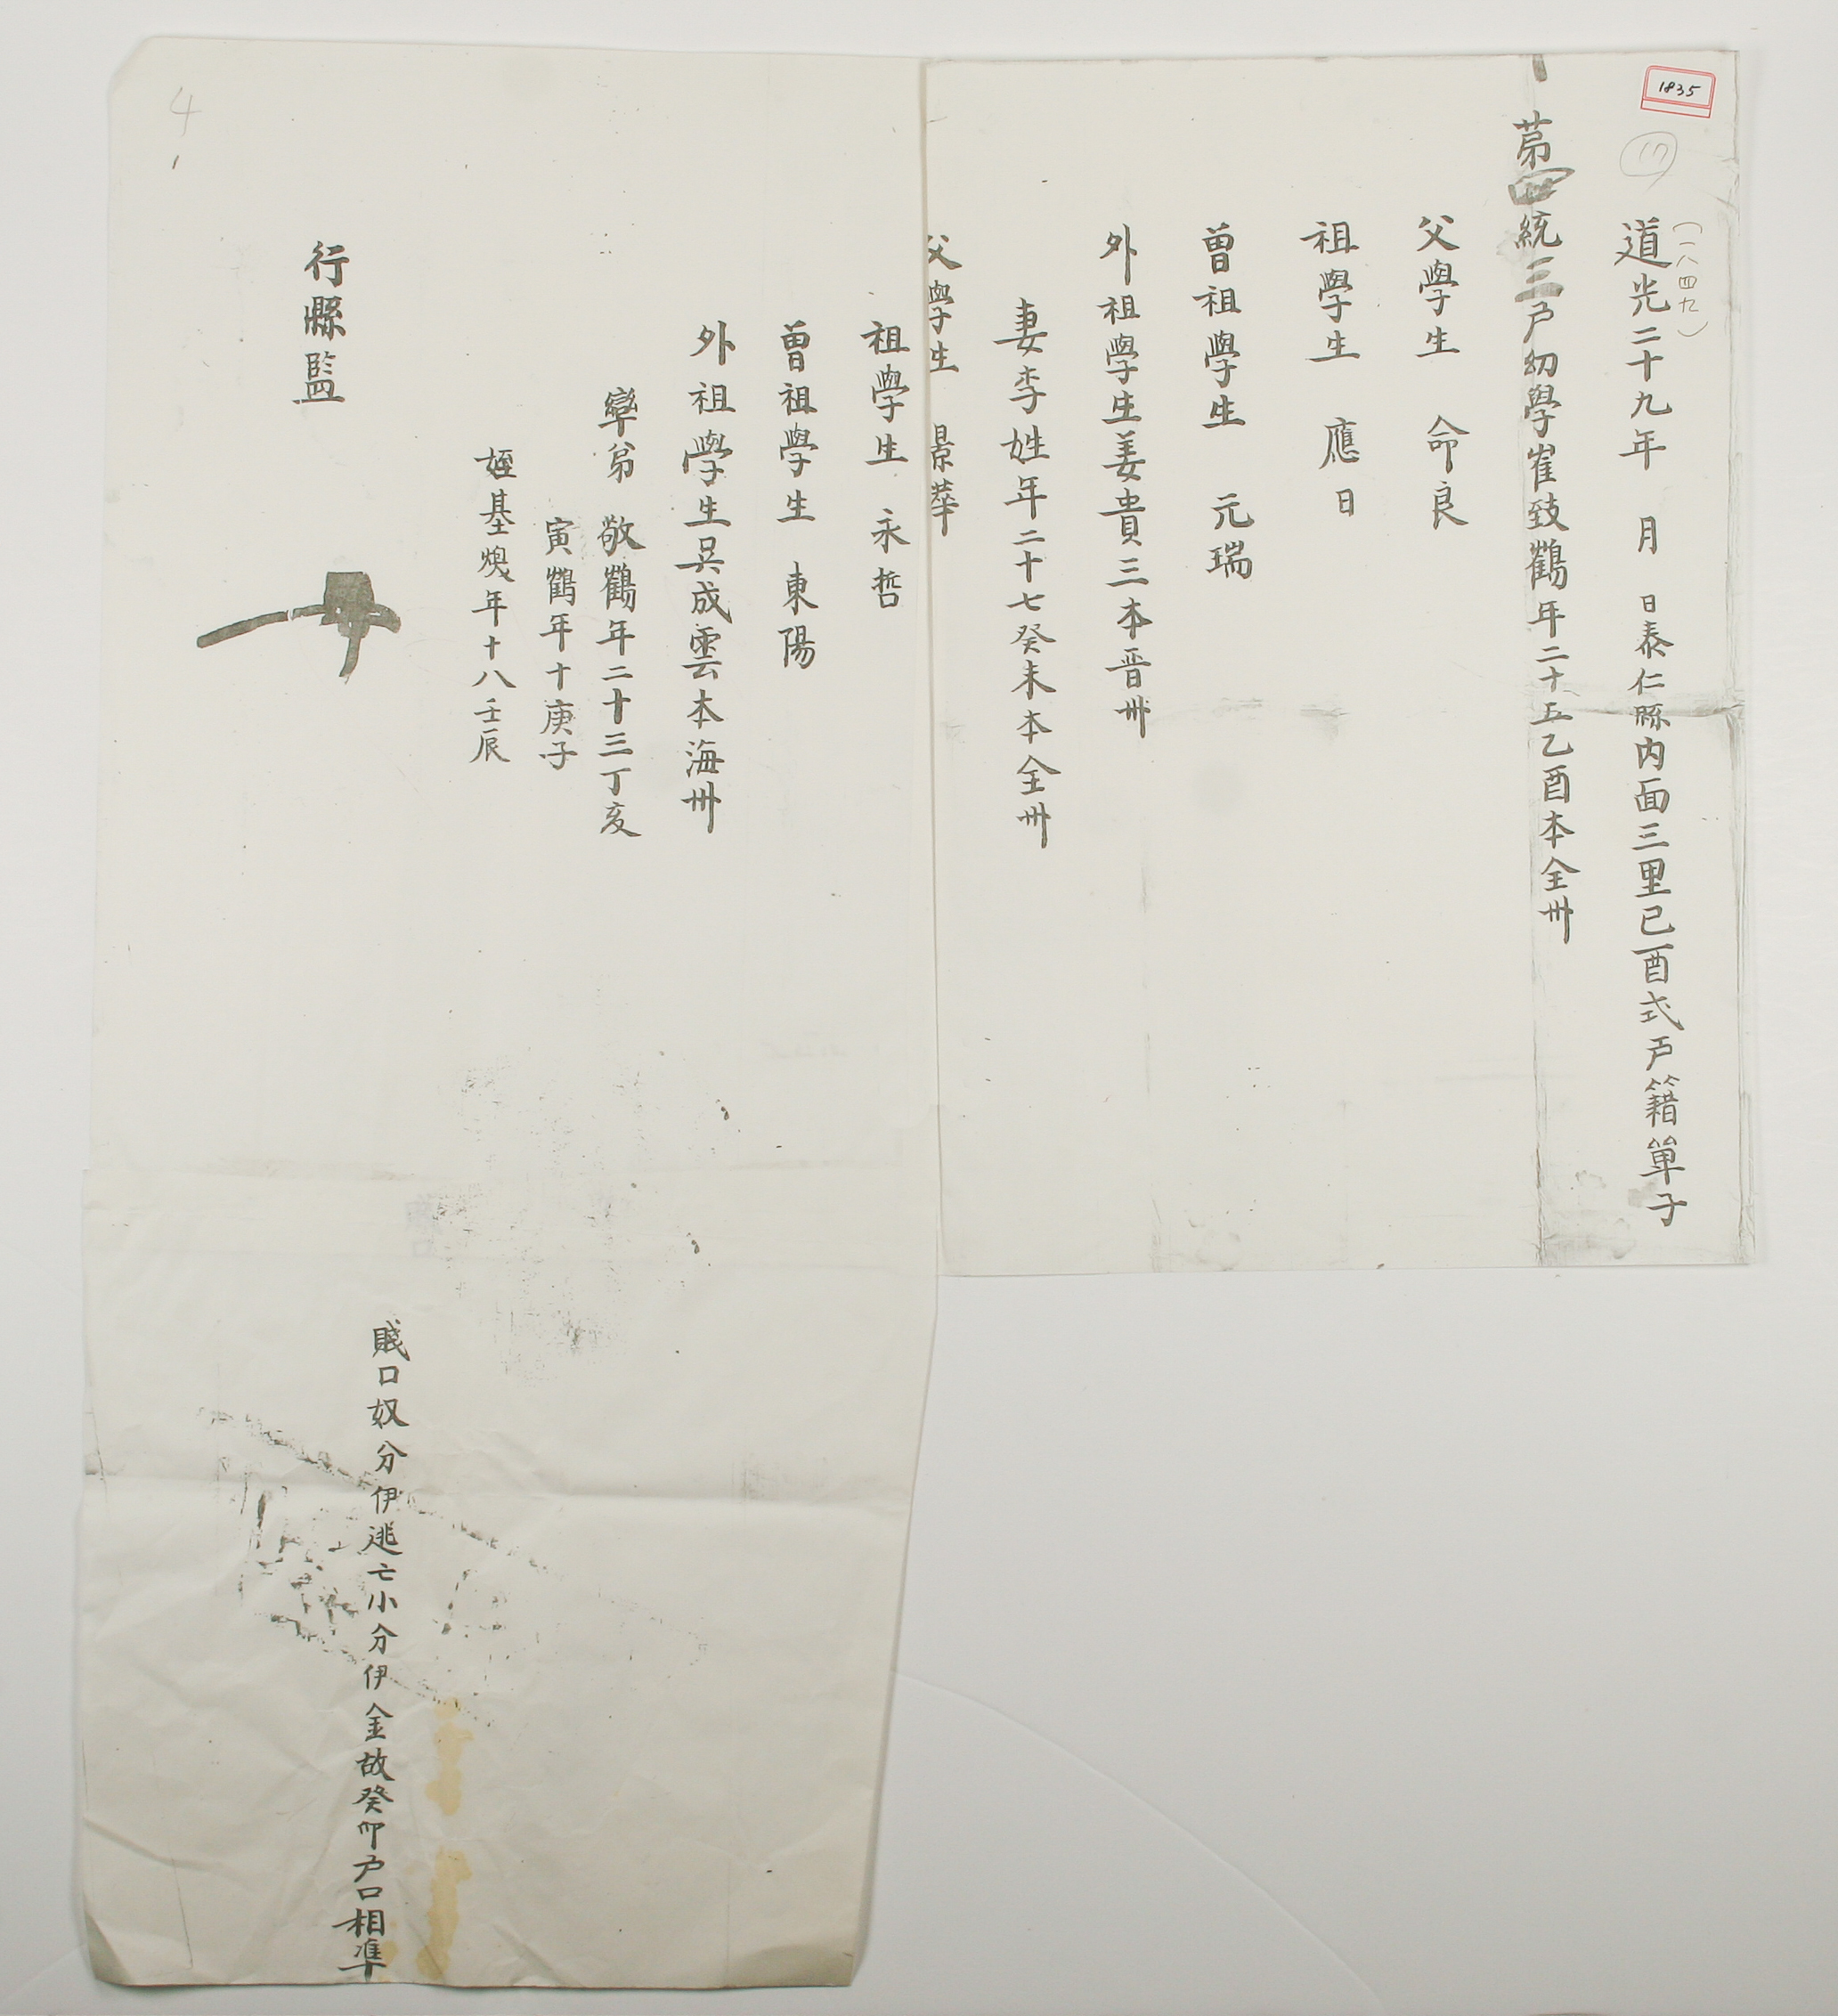 1835
(一八四九)
道光二十九年 月 日泰仁縣内面三里己酉式戶籍單子
苐四統三戶幼學崔致鶴年二十五乙酉本全州
父學生 命良
祖學生 應日
曾祖學生 元瑞
外祖學生姜貴三本晋州
妻李姓年二十七癸未本全州
父學生 景華
祖學生 永哲
曾祖學生 東陽
外祖學生吳成雲本海州
率弟 敬鶴年二十三丁亥
寅鶴年十庚子
姪基煥年十八壬辰
賎口奴分伊逃亡小分伊金故癸卯戶口相準
行縣監
4